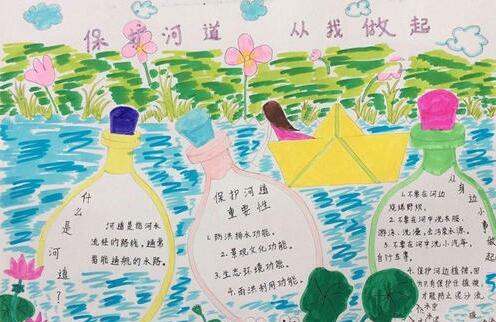 保护河道 从我做起
什么是河道？
河道是指河水
流经的路线，通常
指能通航的水路。
保护河道
重要性
1.防洪排水功能。
2.景观文化功能。
3.生态环境功能。
4.雨洪利用功能。
从身边小事做起
1.不要在河边
烧烤野炊。
2.不要在河中洗衣服、
游泳、洗澡、去污染水源。
3.不要在河中洗小汽车、
自行车等。
4.保护河边植物，因
为只有保护住植被，
才能防止泥沙流